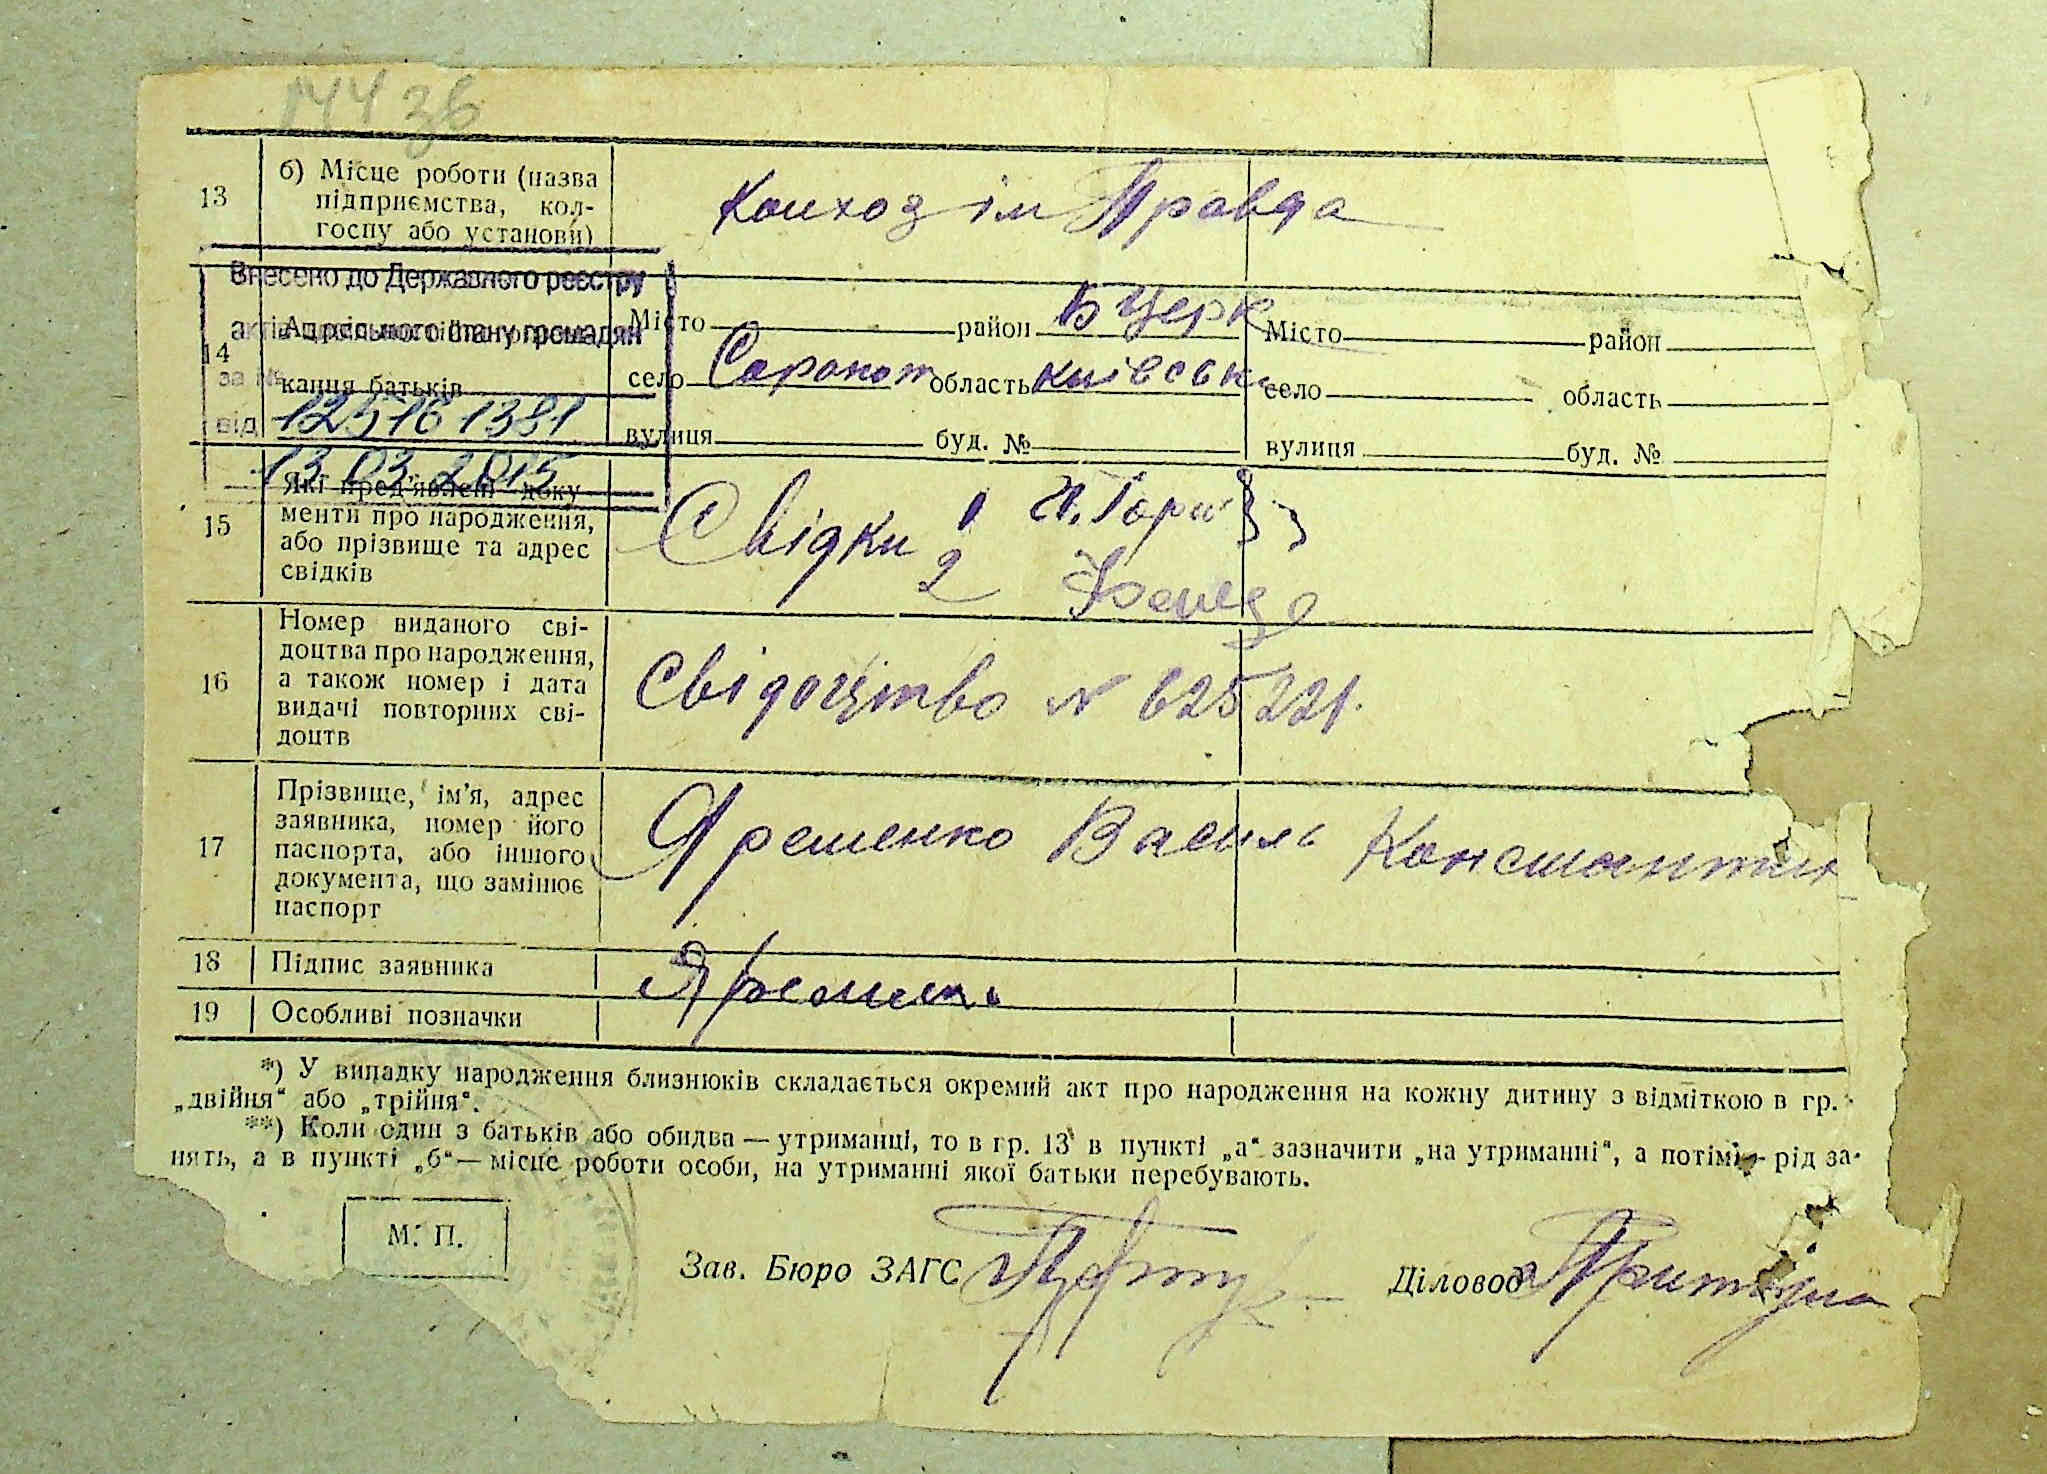 144 зв
13
б) Місце роботи (назва
підприємства, кол-
госпу або установи)
Колхоз ім Правда
Внесено до Державного реєстру
актів цивільного стану громадян
за №
від
12516 1381
13.03.2015
14
канця батьків
Місто район Б Церк
село область Київськ
вулиця буд. №
Місто район
село область
вулиця буд. №
15
Які пред'явлені доку-
менти про народження,
або прізвище та адрес
свідків
Свідки 1
2
16
Номер виданого сві-
доцтва про народження,
а також номер і дата
видачі повторних сві-
доцтв
Свідоцтво № 625221.
17
Прізвище, ім'я, адрес
заявника, номер його
паспорта, або іншого
документа, що замінює
паспорт
Яременко Василь Константин
18
Підпис заявника
19
Особливі позначки
*) У випадку народження близнюків складається окремий акт про народження на кожну дитину з відміткою в гр.
„двійня“ або „трійня“.
**) Коли один з батьків або обидва — утриманці, то в гр. 13 в пункті „а“ зазначити „на утриманні“, а потім — рід за-
нять, а в пункті „б“ — місце роботи особи, на утриманні якої батьки перебувають.
М. П.
Зав. Бюро ЗАГС
Діловод